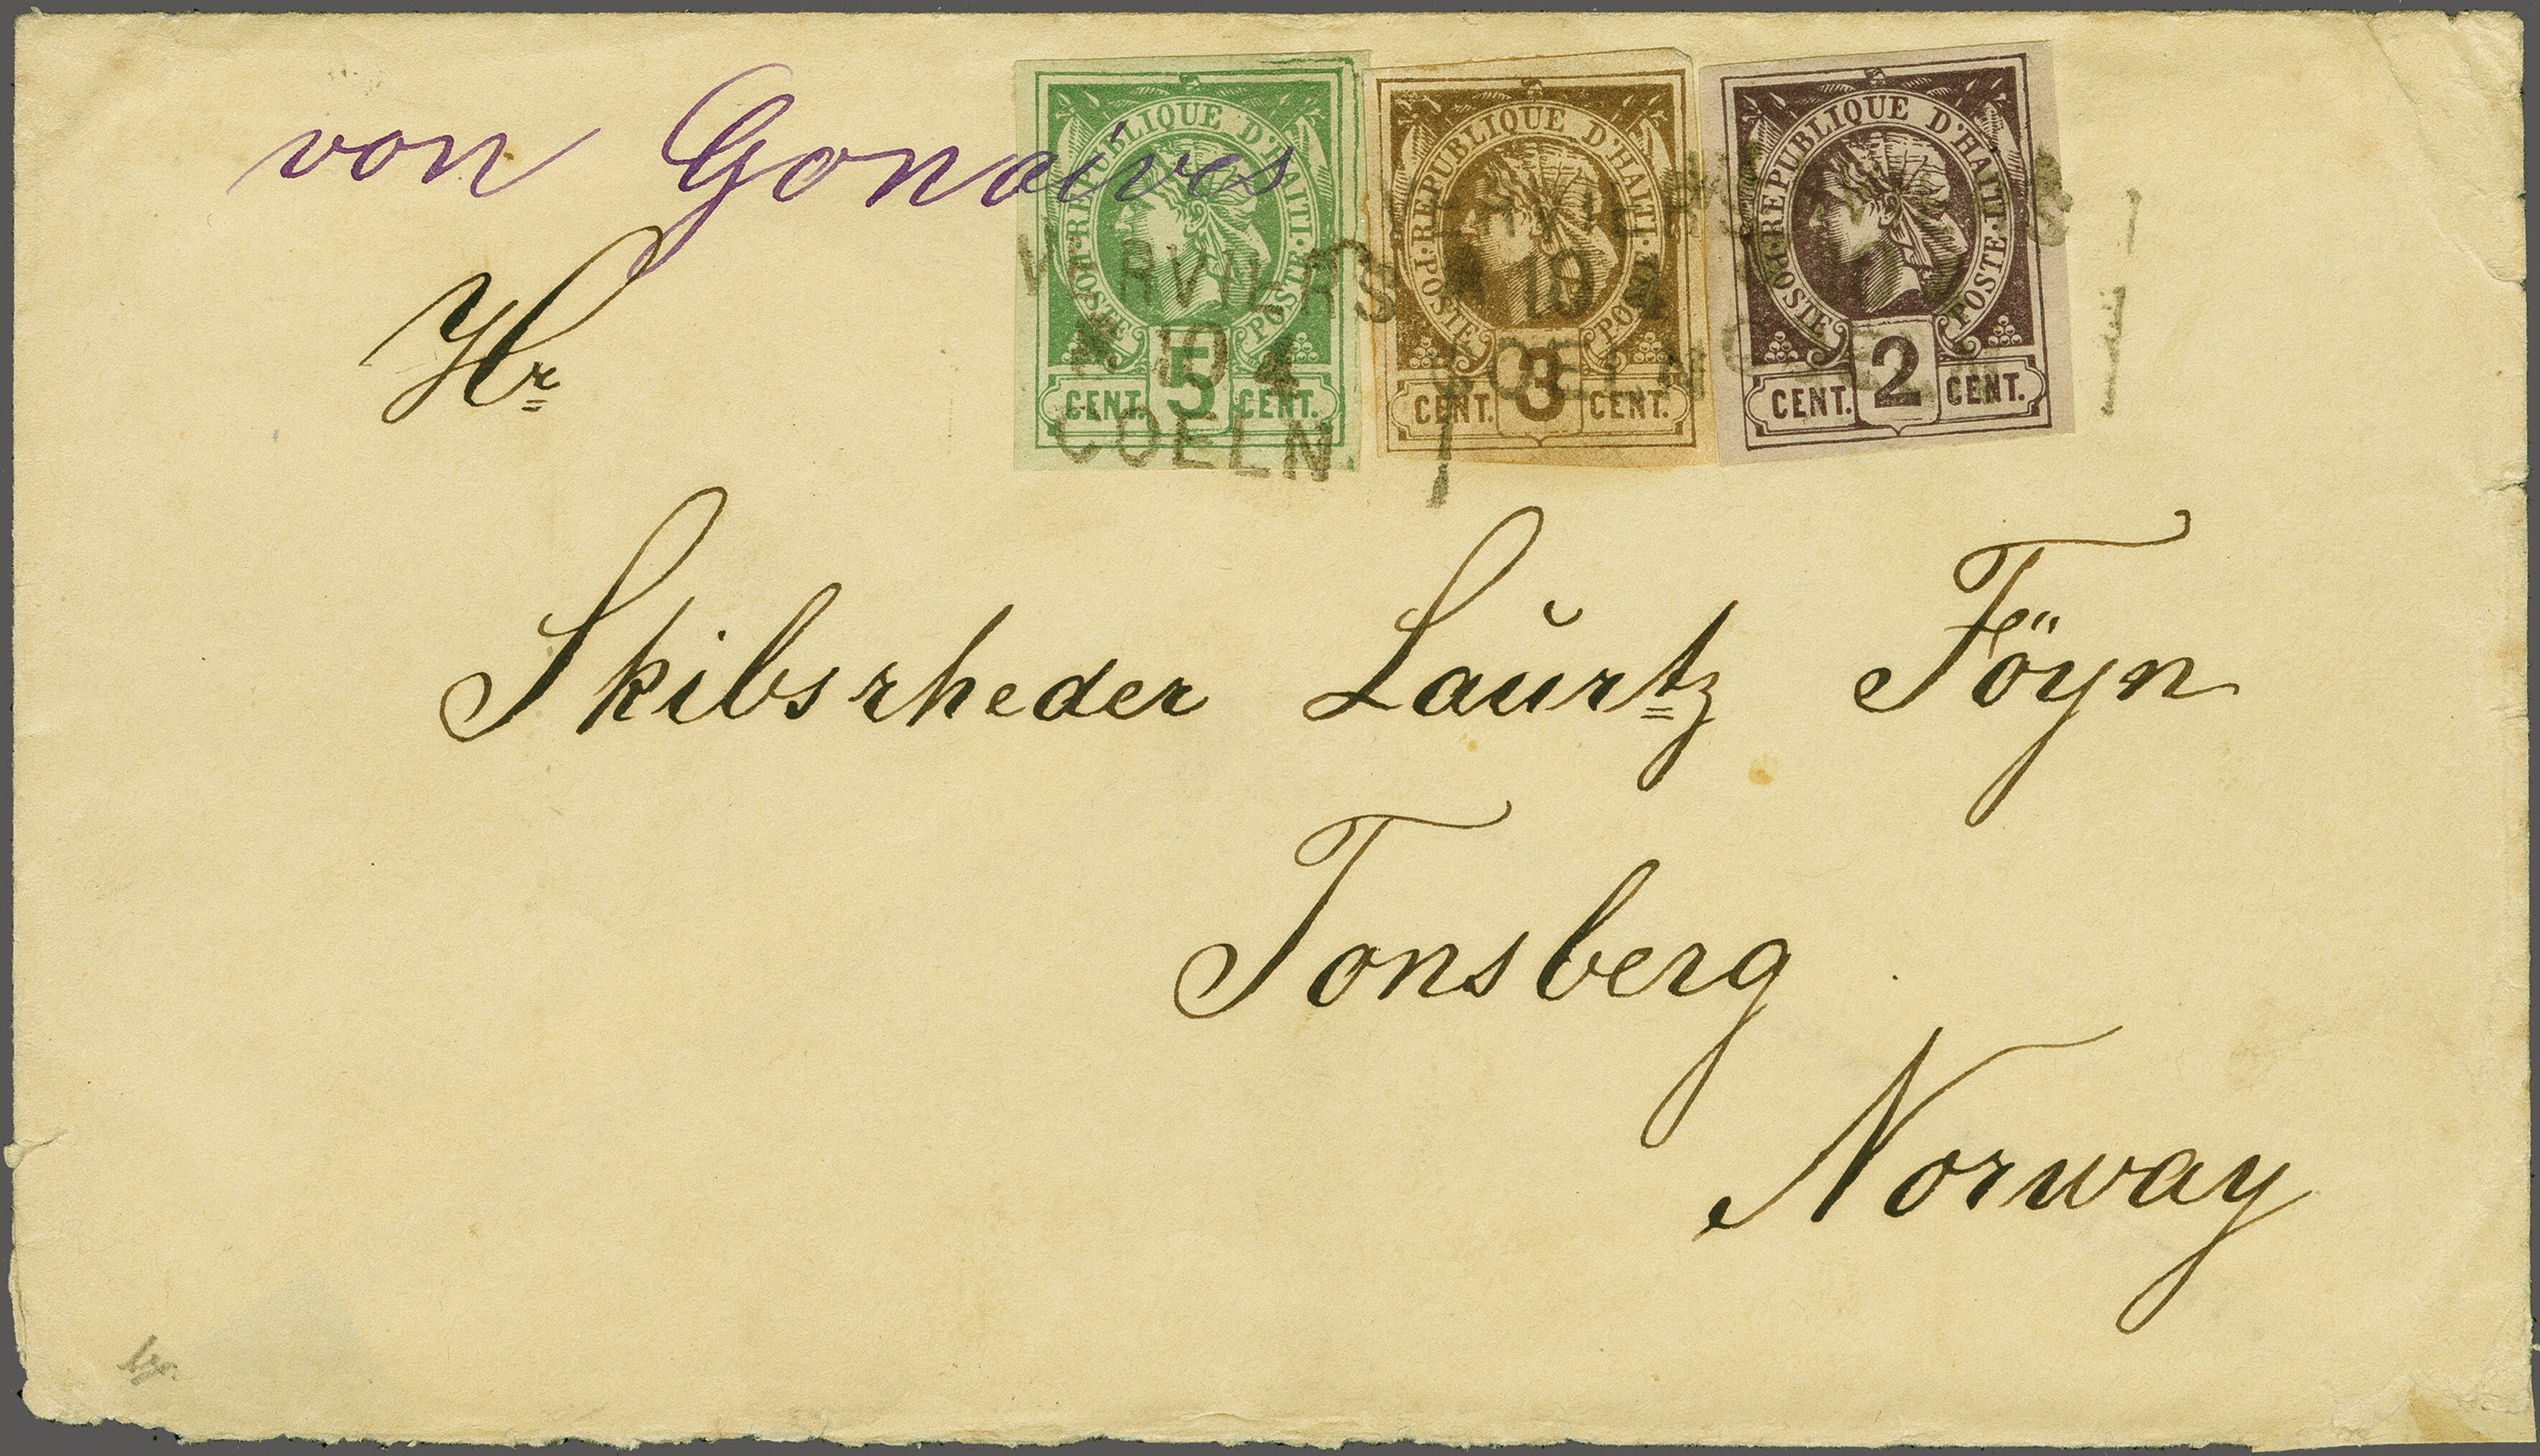 von Gonaives
RÉPUBLIQUE D'HAITI
POSTE POSTE
CENT. 5 CENT.
RÉPUBLIQUE D'HAITI
POSTE POSTE
CENT. 3 CENT.
RÉPUBLIQUE D'HAITI
POSTE POSTE
CENT. 2 CENT.
VERVIERS
10 4
COELN
VERVIERS
10 4
COELN
Hr
Skibsrheder Laurtz Föyn
Tonsberg
Norway